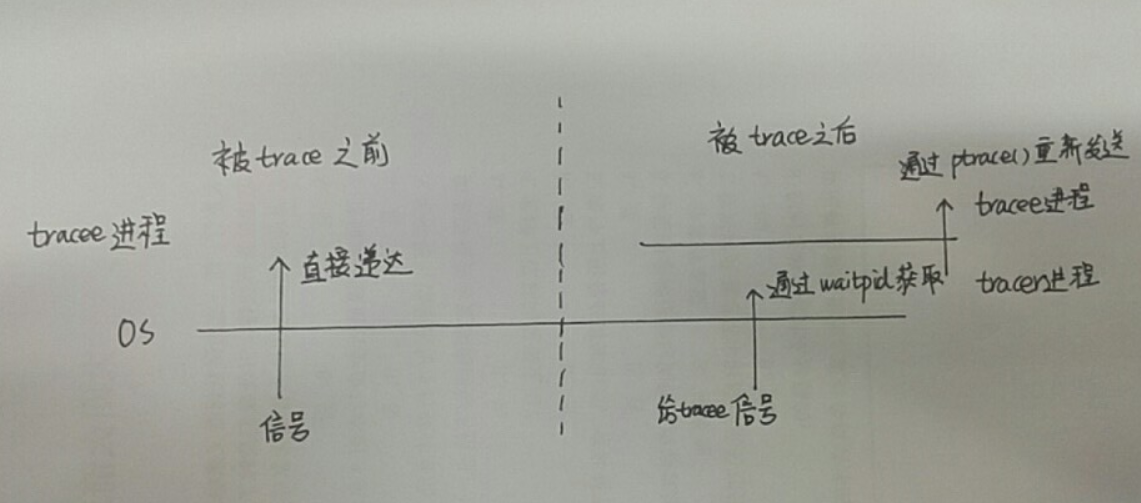 被trace之前
tracee进程
直接递达
OS
信号
被trace之后
通过ptrace()重新发送
tracee进程
通过waitpid获取
tracer进程
给tracee信号